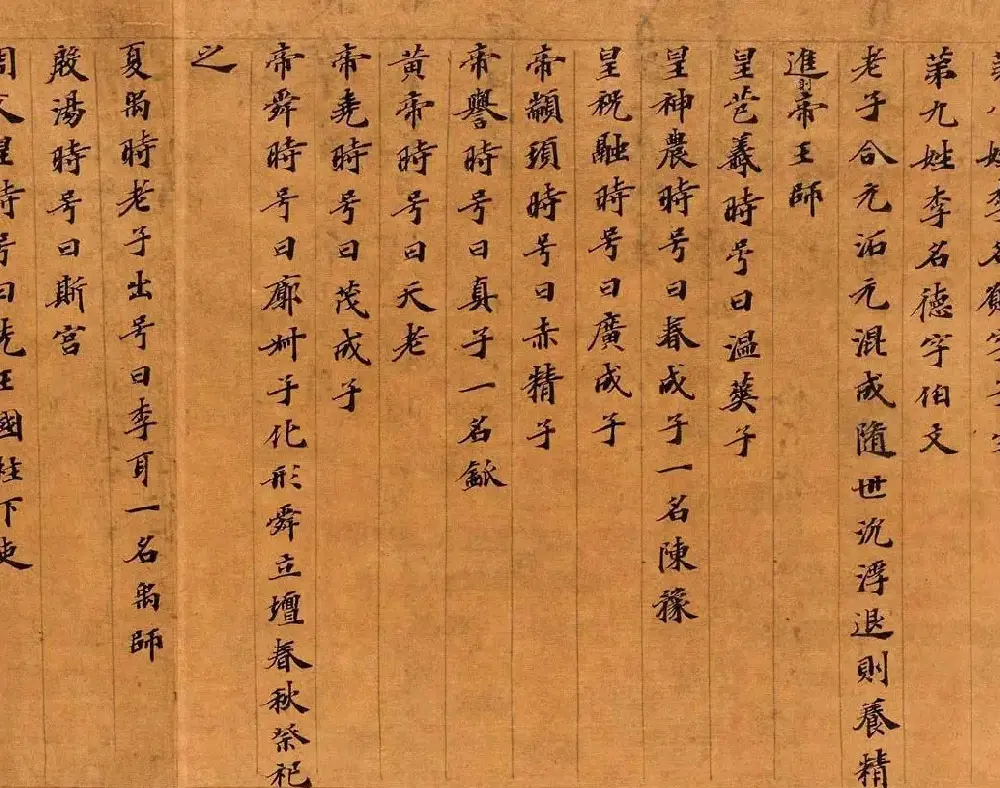 姓李名寶字
第九姓李名德字伯文
老子合元沰元混成隨世沉浮退則養精
進則帝王師
皇苞羲時号曰温莢子
皇神農時号曰春成子一名陳豫
皇祝融時号曰廣成子
帝顓頊時号曰赤精子
帝嚳時号曰真子一名
黄帝時号曰天老
帝堯時号曰茂成子
帝舜時号曰廓州子化形舜立壇春秋祭祀
之
夏禹時老子出号曰李耳一名禹師
殷湯時号曰斯宫
周文皇時号曰先王國柱下吏